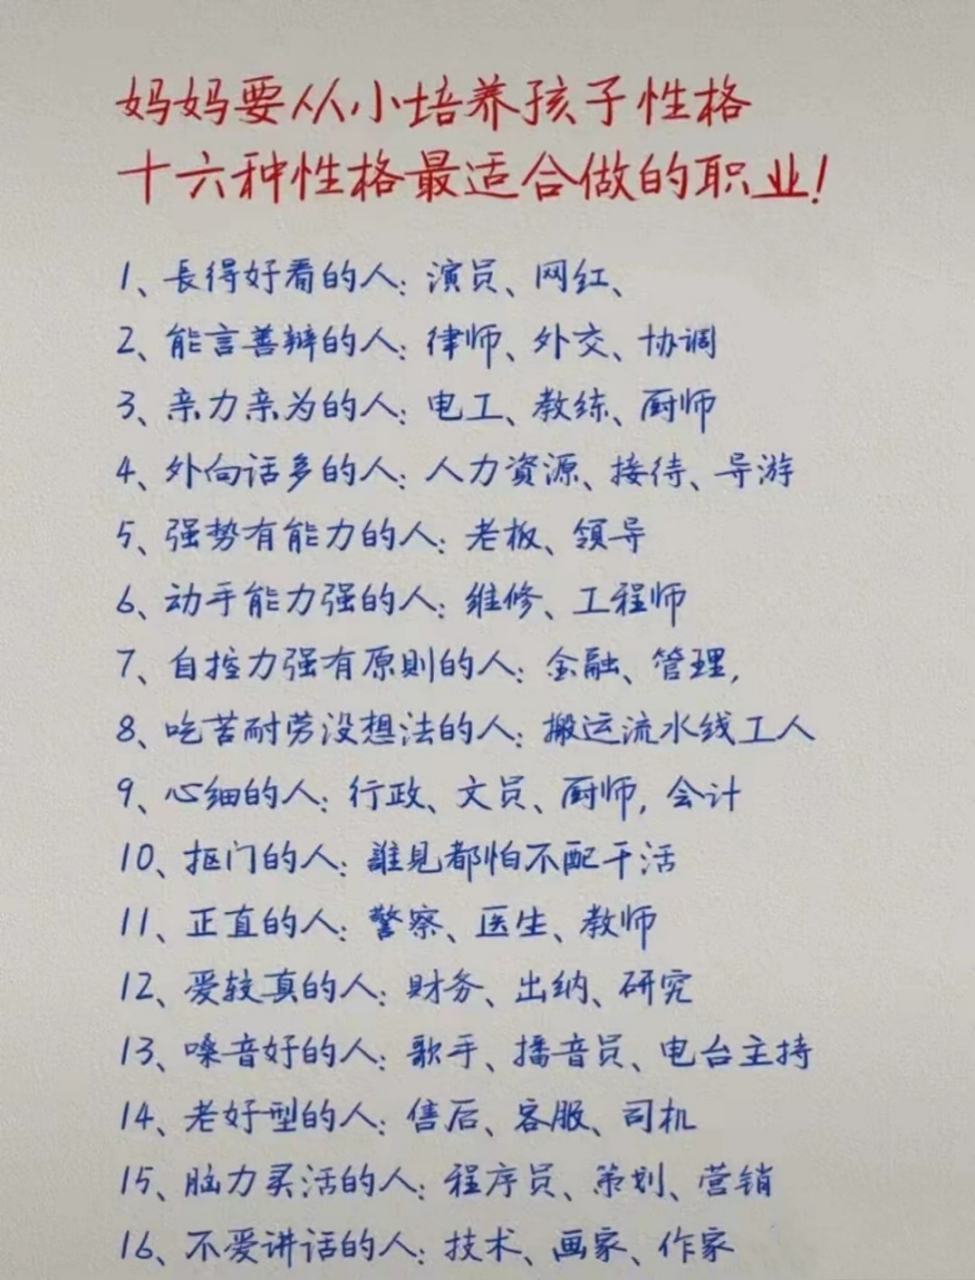 妈妈要从小培养孩子性格
十六种性格最适合做的职业!
1、長得好看的人: 演员、网红、
2、能言善辩的人: 律师、外交、协调
3、亲力亲为的人: 电工、教练、厨师
4、外向话多的人: 人力資源、接待、导游
5、强势有能力的人: 老板、领导
6、动手能力强的人: 维修、工程师
7、自控力强有原则的人: 金融、管理,
8、吃苦耐劳没想法的人: 搬运流水线工人
9、心细的人: 行政、文员、厨师, 会计
10、抠门的人: 誰见都怕不配干活
11、正直的人: 警察、医生、教师
12、爱较真的人: 财务、出纳、研究
13、嗓音好的人: 歌手、播音员、电台主持
14、老好型的人: 售后、客服、司机
15、脑力灵活的人: 程序员、策划、营销
16、不爱讲话的人: 技术、画家、作家